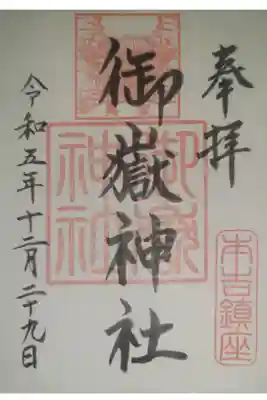 奉拝
本古鎮座
御嶽神社
御嶽神社
令和五年十二月二十九日